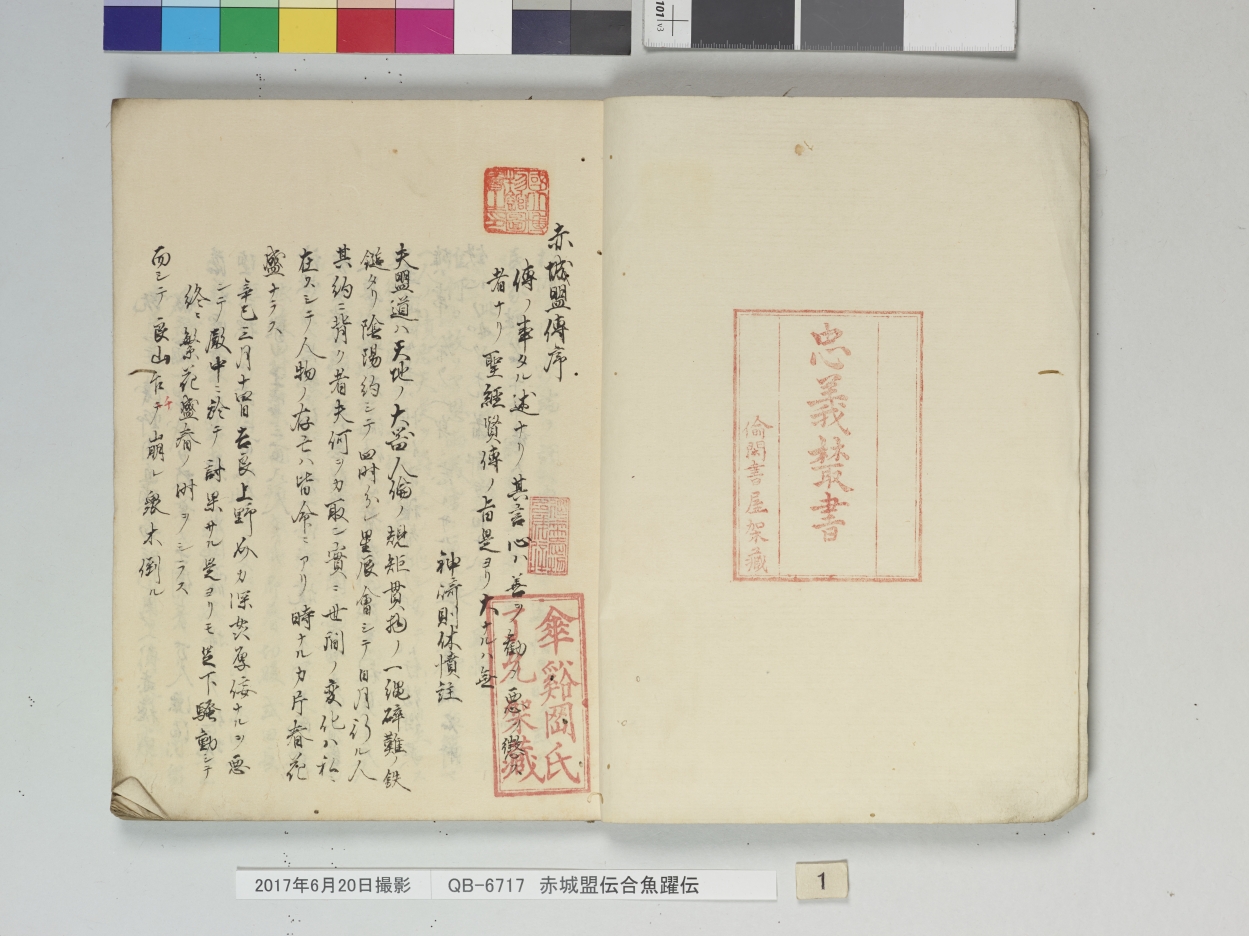 忠義叢書
偸閑書屋架藏
赤城盟傳序
傳ノ事タル述ナリ其言心ハ善ヲ勸メ惡ヲ懲ス
者ナリ聖經賢傳ノ旨是ヨリ大ナルハ無
神﨑則休憤註
夫盟道ハ天地ノ大器人倫ノ規矩貫物ノ一縄碎難ノ鉄
鎚タリ陰陽約シテ四時分レ星辰會シテ日月行ル人
其約ニ背ク者夫何ヲカ取ン實ニ世間ノ変化ハ
在スシテ人物ノ存亡ハ皆命ニアリ時ナルカ片春花
盛ナラス
辛巳三月十四日吉良上野介カ深共厚侫ナルヲ悪
ンテ殿中ニ於テ討果サル是ヨリモ足下騒動シテ
終ニ繁花盛春ノ時ヲシラス
而シテ良山右テ崩レ衆木倒ル
チ
傘谿岡氏
架藏
2017年6月20日撮影
QB-6717 赤城盟伝合魚躍伝
1
101 v3